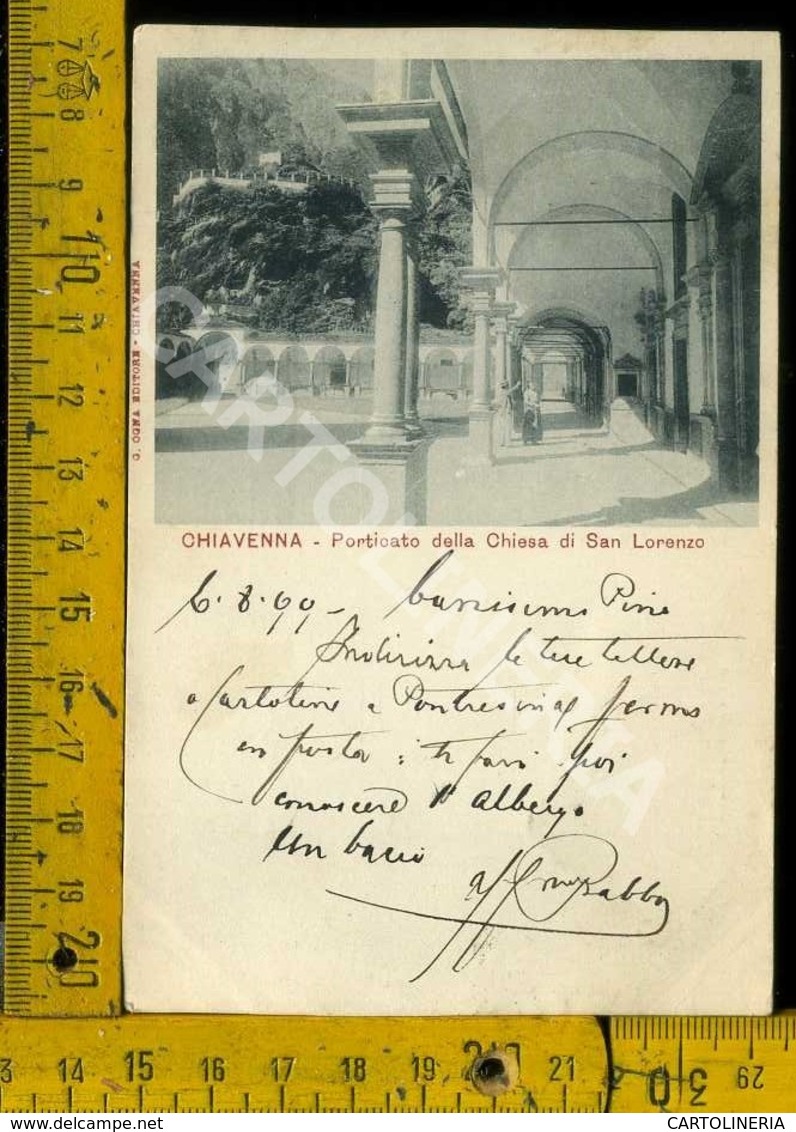 G. OGNA EDITORE - CHIAVENNA
CHIAVENNA - Porticato della Chiesa di San Lorenzo
6.8.99 - Carissimo Pino
Indirizza le tue lettere
o Cartoline a Pontresina fermo
in posta: ti farò poi
conoscere l'albergo
Un bacio
aff Babbo
CARTOLINERIA
7
8
9
10
11
12
13
14
15
16
17
18
19
20
13
14
15
16
17
18
19
20
21
30
29
CARTOLINERIA